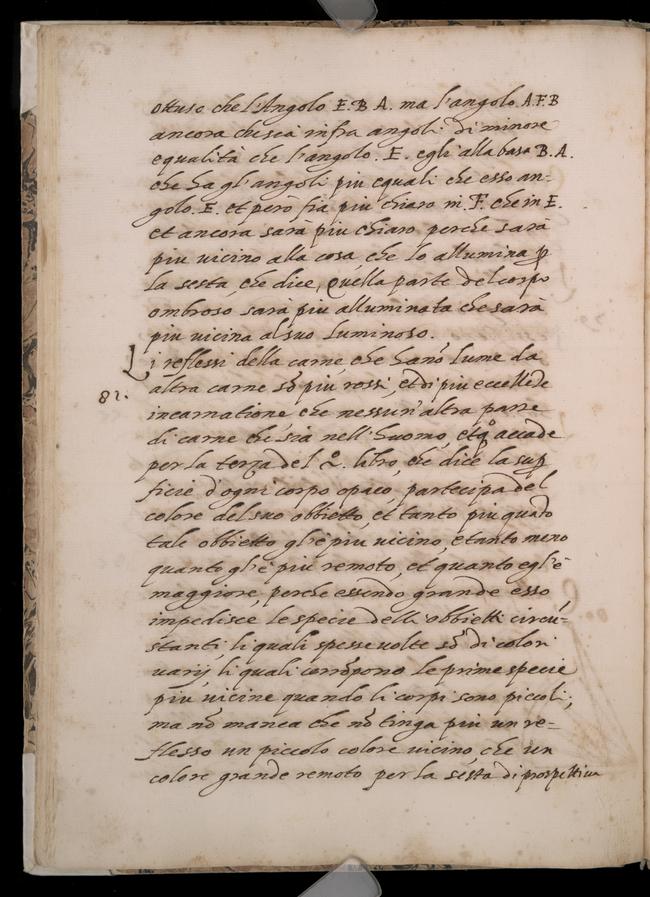 ottuso che l'Angolo E. B A. ma l'angolo A.F.B
ancora ch'sia infra angoli di minore
equalità che l'angolo. E. egli alla basa B. A.
che ha gl'angoli piu equali che esso an-
golo. E. et però fia piu chiaro in .F. che in E.
et ancora sarà piu chiaro perche sarà
piu uicino alla cosa, che lo allumina p
la sesta, che dice, Quella parte del corpo
ombroso sarà piu alluminata che sarà
piu uicina al suo Luminoso.
Li reflessi della carne, che hanō lume da
82.
altra carne sō piu rossi, et di piu eccellēte
incarnatione, che nessun'altra parte
di carne che sia nell'huomo, et qō accade
per la terza del 2.º libro, che dice la sup
ficie d'ogni corpo opaco, partecipa del
colore del suo obbietto, et tanto piu quādo
tale obbietto gl'è piu uicino, e tanto meno
quanto gl'è piu remoto, et quanto egl'è
maggiore, perche essendo grande esso
impedisce le specie delli obbietti circū-
stanti, li quali spesse uolte sō di colori
uarij, li quali corrōpono le prime specie
piu uicine quando li corpi sono piccoli;
ma nō manca che nō tinga piu un re-
flesso un piccolo colore uicino, che un
colore grande remoto per la sesta di prospettiua